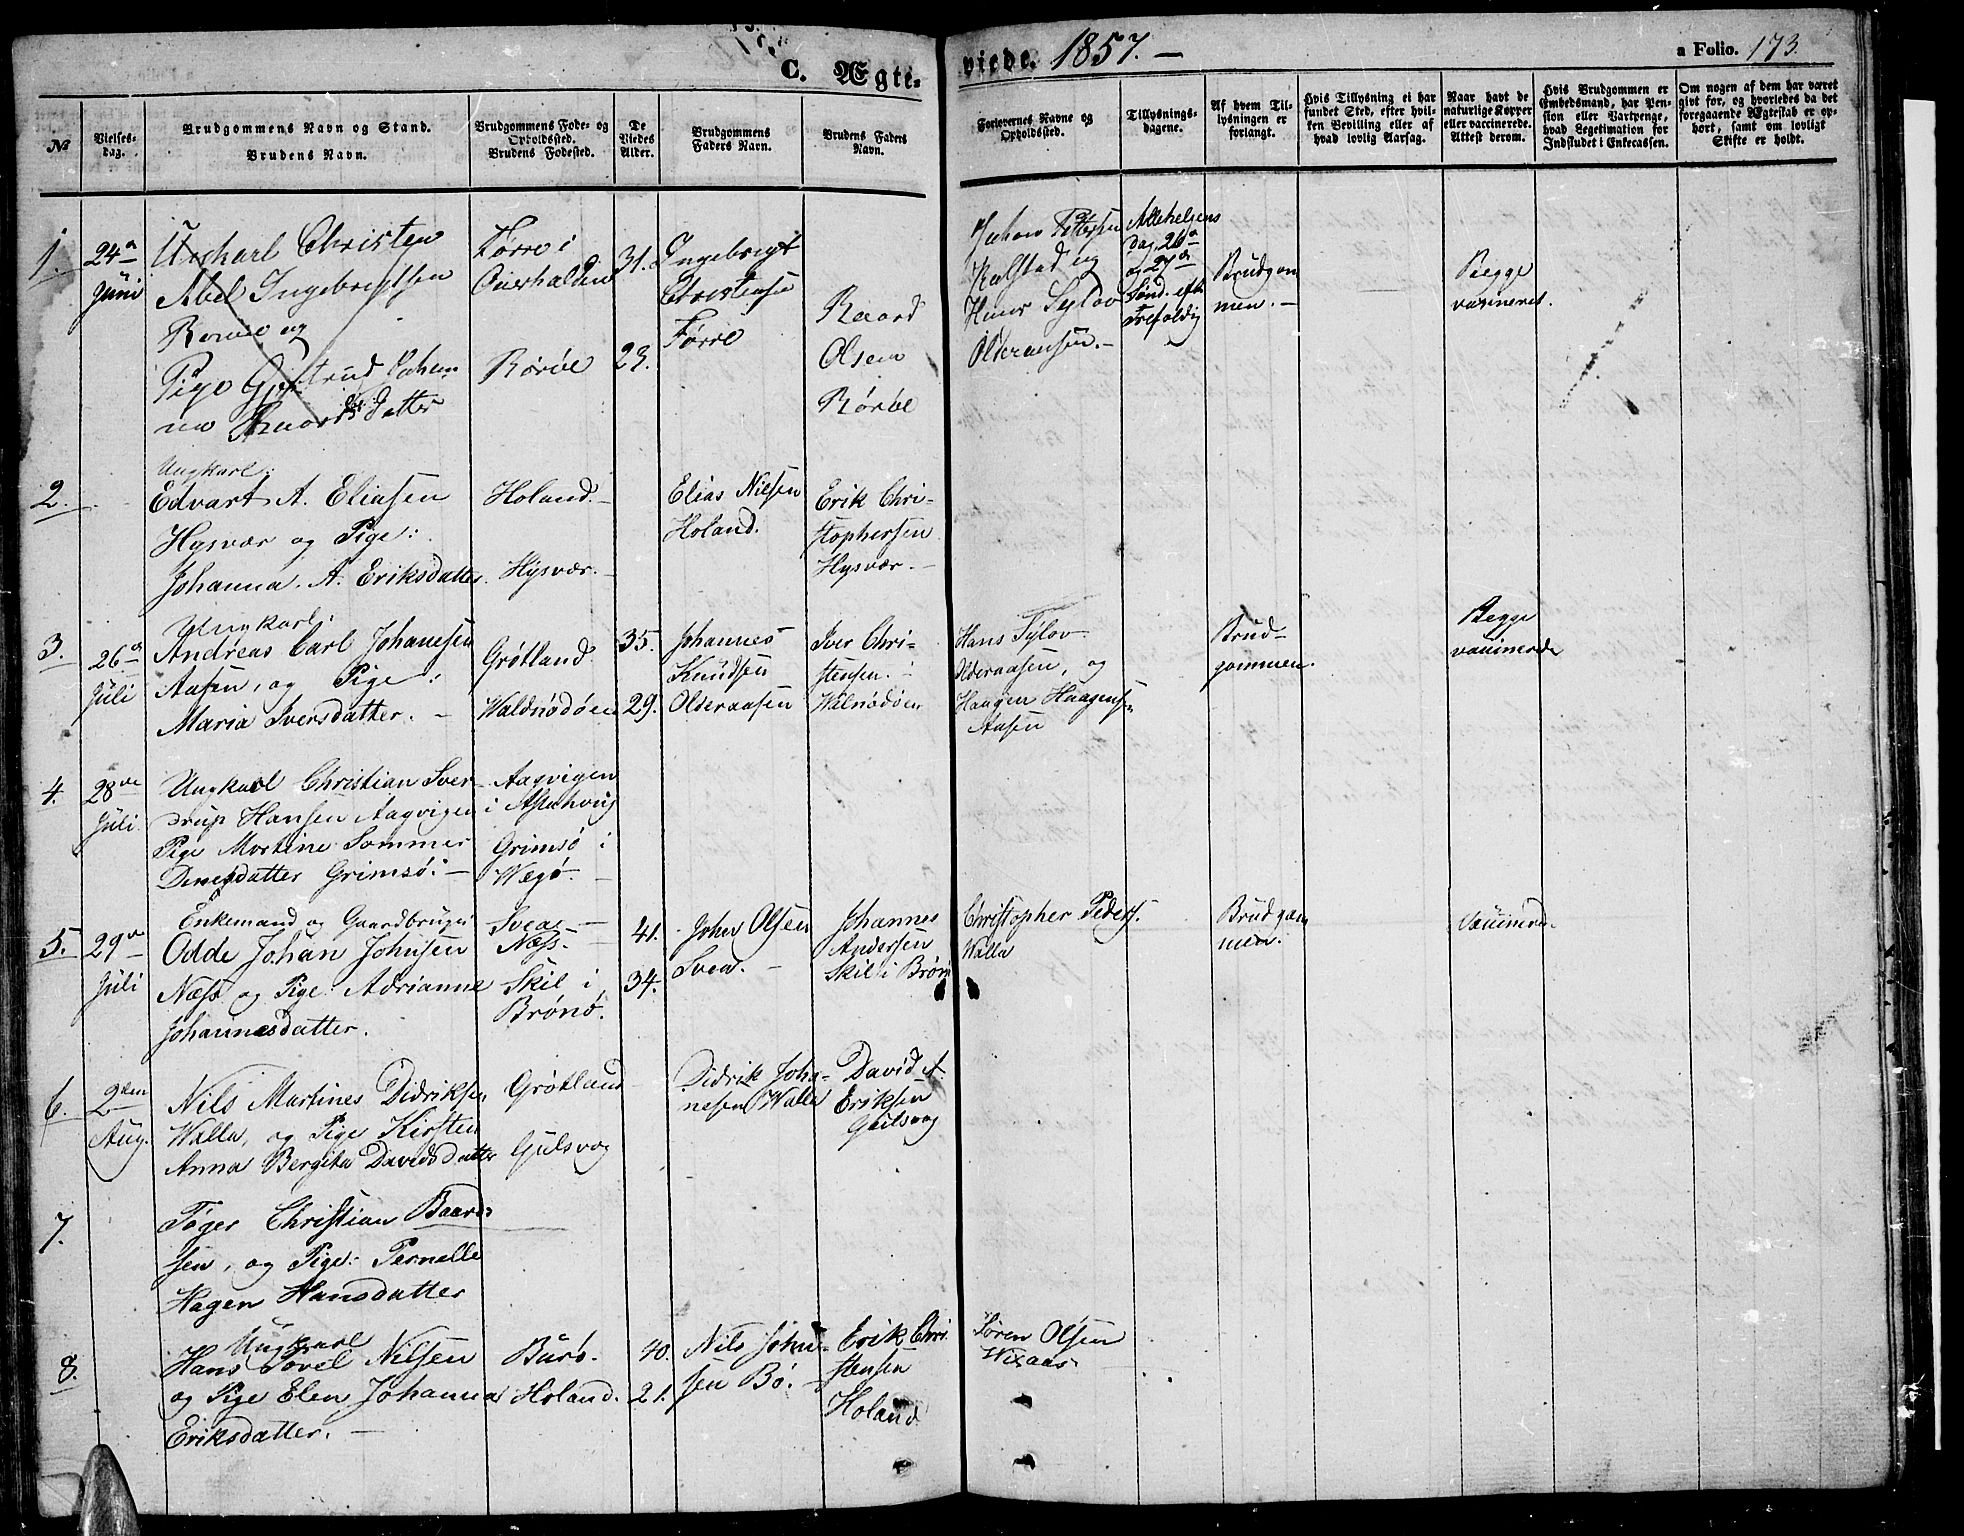 C. Ægte- viede. 1857. —
a Folio. 173.
№
Vielses-
dag.
Brudgommens Navn og Stand.
Brudens Navn.
Brudgommens Føde- og
Opholdssted.
Brudens Fødested.
De
Viedes
Alder.
Brudgommens
Faders Navn.
Brudens Faders
Navn.
Forlovernes Navne og
Opholdssted.
Tillysnings-
dagene.
Af hvem Til-
lysningen er
forlangt.
Hvis Tillysning ei har
fundet Sted, efter hvil-
ken Bevilling eller af
hvad lovlig Aarsag.
Naar havt de
naturlige Kopper
eller vaccinerede.
Attest derom.
Hvis Brudgommen er
Embedsmand, har Pen-
sion eller Vartpenge,
hvad Legetimation for
Indskudet i Enkecassen.
Om nogen af dem har været
gift før, og hvorledes da det
foregaaende Ægteskab er op-
hørt, samt om lovligt
Skifte er holdt.
1
24de
Juni
Ungkarl Christen
Abel Ingebrigtsen
Rørøe og
Pige Gjertrud Johan
na Baardsdatter
Førre i
Overhalden
Rørøe
31.
23.
Ingebrigt
Christensen
Førre
Baard
Olsen
Rørøe
Johan Pettersen
Kalstad og
Hans Tylov
Olderaasen.-
Allehelgens
Dag, 26de
og 27de
Sønd. efter
Trefoldig
Brudgom
men. -
Begge
vaxineret.
2.
Ungkarl:
Edvart A. Eliasen
Hysvær og Pige:
Johanna. A. Eriksdatter.
Holand. -
Hysvær. -
Elias Nilsen
Holand.
Erik Chri-
stophersen
Hysvær. -
3.
26de
Juli
Ungkarl:
Andreas Carl Johanesen
Aasen, og Pige:
Maria Iversdatter. -
Grøtland.
Waldnødøen
35.
29.
Johannes
Knudsen
Olderaasen
Iver Chri-
stensen. -
Walnødøen
Hans Tylov
Olderaasen, og
Haagen Haagens=n
Aasen
Brud-
gommen.
Begge
vaxinerede
4.
28de
Juli.
Ungkarl Christian Sver-
drup Hansen Aagvigen
Pige Martine Sommer
Dinesdatter Grimsø. -
Aagvigen
i
Grimsø i
Wegø. -
5.
29de
Juli
Enkemand og Gaardbruger
Odde Johan Johnsen
Næss og Pige: Adrianne
Johannesdatter.
Svea -
Næss. -
Skil i
Brønø.
41.
34.
John Olsen
Svea. -
Johannes
Andersen
Skil i Brønø
Christopher Peders.
Walla
Brudgom
men.
Vaxinered.
6.
2den
Aug.
Nils Martines Didriksen
Walla, og Pige Kirsten
Anna Bergita Davidsdatter
Grøtland
Gulsvog
Didrik Joha-
nesen Walla
David A
Eriksen
Gulsvog
7.
Tøger Christian Baard-
sen, og Pige: Pernelle
Hagen Hansdatter
8.
Ungkarl
Hans Povel Nilsen
og Pige Elen Johanna
Eriksdatter. -
Burø.
Holand.
40.
21.
Nils John-
sen Bø. -
Erik Chri-
stensen
Holand
Søren Olsen
Wixaas